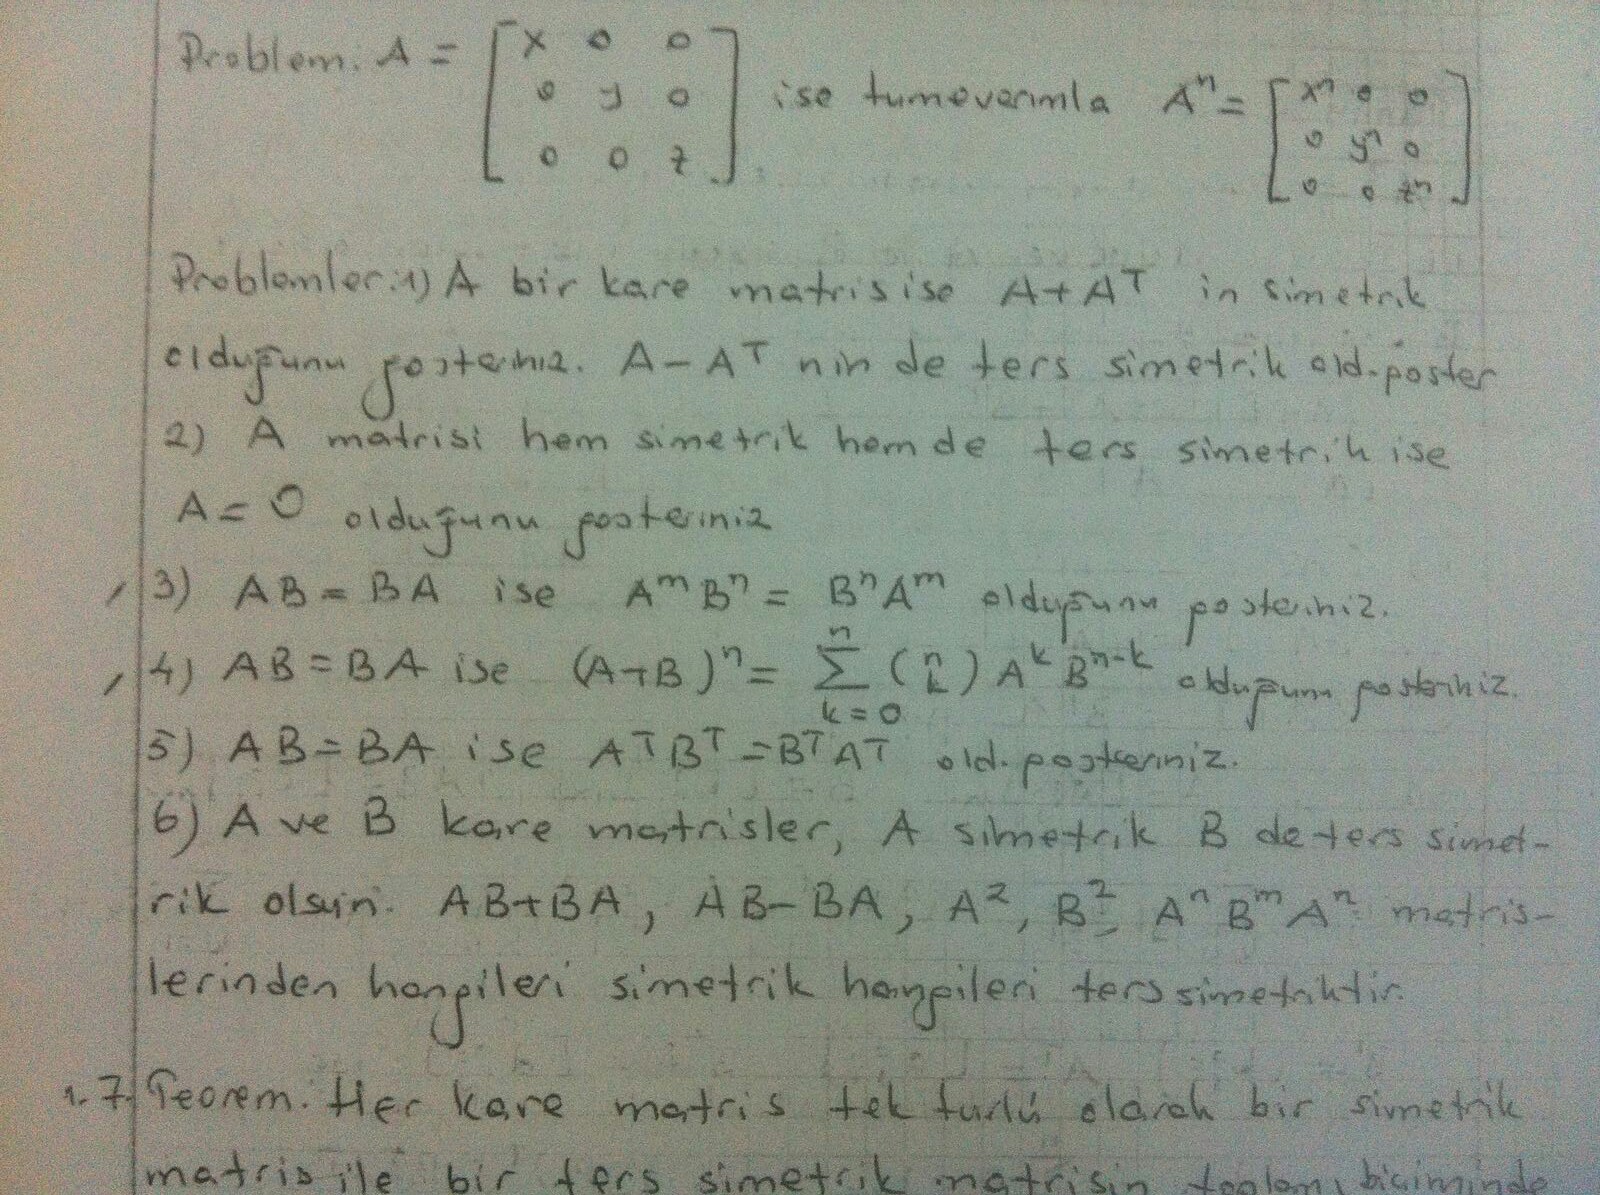 Problem: A = [x 0 0
0 y 0
0 0 z] ise tümevarımla Aⁿ = [xⁿ 0 0
0 yⁿ 0
0 0 zⁿ]
Problemler: 1) A bir kare matris ise A+Aᵀ in simetrik
olduğunu gösteriniz. A-Aᵀ nin de ters simetrik old. göster
2) A matrisi hem simetrik hem de ters simetrik ise
A = 0 olduğunu gösteriniz
3) AB = BA ise AᵐBⁿ = BⁿAᵐ olduğunu gösteriniz.
4) AB = BA ise (A+B)ⁿ = Σ_{k=0}^{n} (n k) Aᵏ Bⁿ⁻ᵏ olduğunu gösteriniz.
5) AB = BA ise AᵀBᵀ = BᵀAᵀ old. gösteriniz.
6) A ve B kare matrisler, A simetrik B de ters simet-
rik olsun. AB+BA, AB-BA, A², B², AⁿBᵐAⁿ matris-
lerinden hangileri simetrik hangileri ters simetriktir.
1.7. Teorem. Her kare matris tek türlü olarak bir simetrik
matris ile bir ters simetrik matrisin toplamı biçiminde